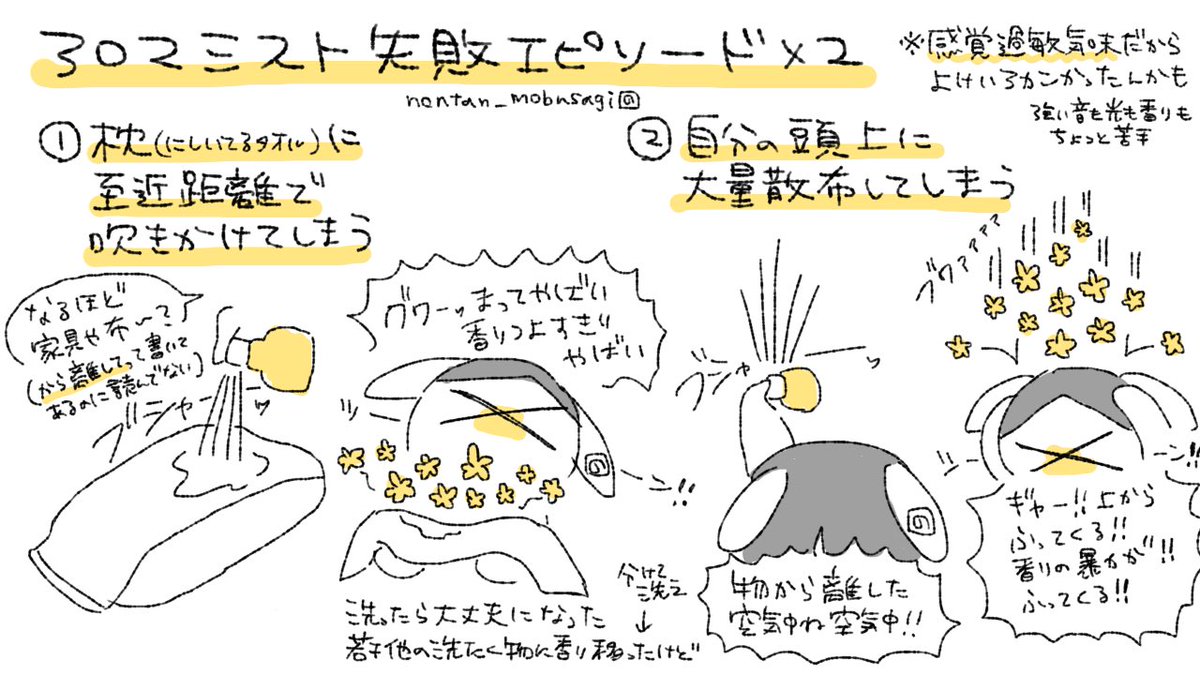 302ミスト失敗エピソード×2
nontan_mobusagi
※感覚過敏気味だから
よけいろカンかったんかも
強い音も光も香りも
ちょっと苦手
① 枕(にしいてるタオル)に
至近距離で
吹きかけてしまう
なるほど
家具や布へて?
(から離してって書いて
あるのに読んでない)
ブシャーッ
ブワーッまってやばい
香りつよすぎ!!
やばい
ツーン!!
の
洗ったら大丈夫になった
若干他の洗たく物に香り移ったけど
分けて
洗え
② 自分の頭上に
大量散布してしまう
ブシャッ
の
物から離した
空気中ね空気中!!
ブワァァァァ
ツーン!!
ギャー!!上から
ふってくる!!
香りの暴力が!!
ふってくる!!